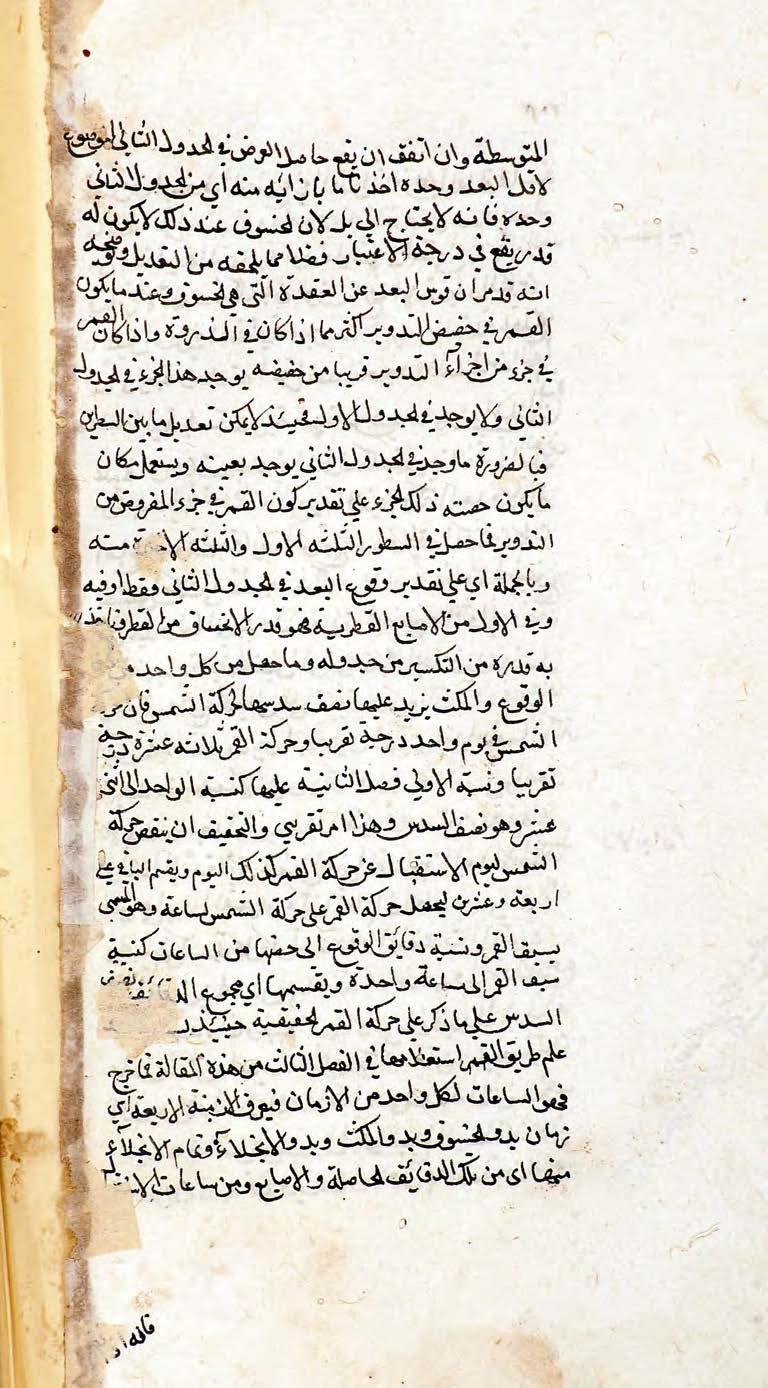 المتوسطة وان اتفق ان يقع حاصل العرض في الجدول الثاني الموضوع
لاقل البعد وحده اخذ تاما بازائه منه اي من الجدول الثاني
وحده فانه لا يحتاج الي بل لان الخسوف عند ذلك لا يكون له
قدر يقع في درجة الاعتبار فضلا مما يلحقه من التعديل وقد
انه قد مر ان قوس البعد عن العقدة التي هي الخسوف وعند ما يكون
القمر في حضيض التدوير اكثر مما اذا كان في الذروة واذا كان القمر
في جزء من اجزاء التدوير قريبا من حضيضه يوجد هذا الجزء في الجدول
الثاني ولا يوجد في الجدول الاول فحينئذ لا يمكن تعديل ما بين السطرين
فبالضرورة ما وجد في الجدول الثاني يوجد بعينه ويستعمل مكان
ما يكون حصته ذلك الجزء علي تقدير كون القمر في جزء المفروض من
التدوير فما حصل في السطور الثلثه الاول والثلثه منه
وبالجملة اي علي تقدير وقوع البعد في الجدول الثاني وفقط او فيه
وفي الاول من الاصابع القطرية فهو قدر الانخساف من القطر
به قدره من التكسير من جدوله وما حصل من كل واحد
الوقوع والمكث يزيد عليها نصف سدسها لحركة الشمس فان
الشمس في يوم واحد درجة تقريبا وحركة القمر ثلاثه عشرة درجة
تقريبا ونسبة الاولي فضل الثانية عليها كنسبة الواحد الى اثني
عشر وهو نصف السدس وهذا امر تقريبي والتحقيق ان ينقص حركة
الشمس ليوم الاستقبال عن حركة القمر كذلك اليوم ويقسم الباقي علي
اربعة وعشرين ليحصل حركة القمر على حركة الشمس لساعة وهو المسمى
بسبق القمر ونسبة دقايق الوقوع الى حصتها من الساعات كنسبة
سبق القمر الى ساعة واحدة ويقسمها اي مجموع
السدس علي ما ذكر علي حركة القمر الحقيقية حينئذ
علم طريق القمر استعلامها في الفصل الثالث من هذه المقالة فما خرج
فهو الساعات لكل واحد من الازمان فيعرف الازمنة الاربعة اي
زمان بدو الخسوف وبدو المكث وبدو الانجلاء وتمام الانجلاء
منها اى من تلك الدقائق الحاصلة والاصابع ومن ساعات
فانه